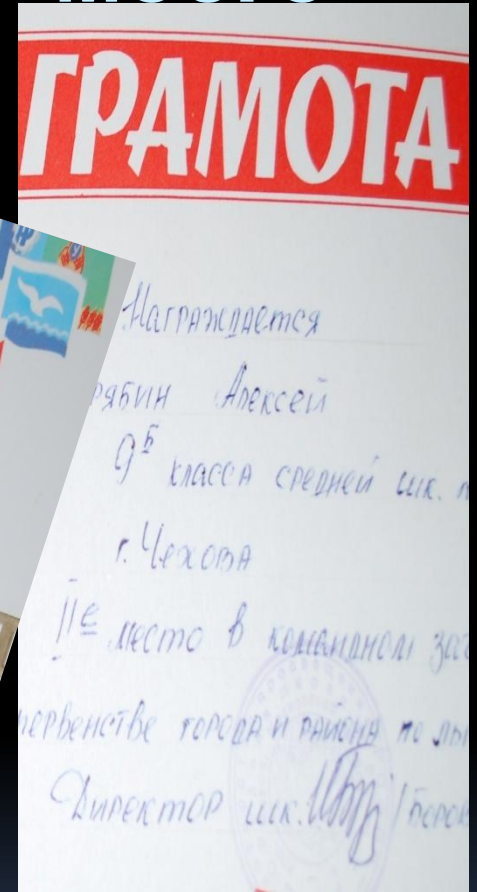 ГРАМОТА
Награждается
рябин Алексей
9Б класса средней шк.
г. Чехова
IIе место в командном зач
первенстве города и района по лы
Директор шк.